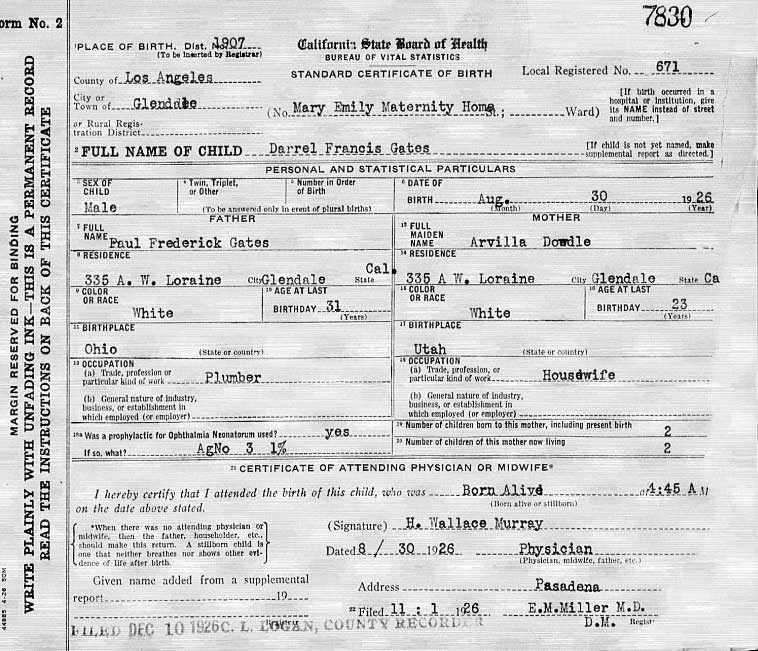 orm No. 2
7830
PLACE OF BIRTH. Dist. No. 1907
(To be inserted by Registrar)
California State Board of Health
BUREAU OF VITAL STATISTICS
STANDARD CERTIFICATE OF BIRTH
Local Registered No. 671
County of Los Angeles
City or
Town of Glendale
(No. Mary Emily Maternity Home, ; Ward)
[If birth occurred in a
hospital or institution, give
its NAME instead of street
and number.]
or Rural Regis-
tration District
2 FULL NAME OF CHILD Darrel Francis Gates
[If child is not yet named, make
supplemental report as directed.]
PERSONAL AND STATISTICAL PARTICULARS
3 SEX OF
CHILD
Male
4 Twin, Triplet,
or Other
5 Number in Order
of Birth
(To be answered only in event of plural births)
6 DATE OF
BIRTH Aug. 30 1926
(Month) (Day) (Year)
FATHER
7 FULL
NAME Paul Frederick Gates
8 RESIDENCE
335 A. W. Loraine City Glendale State Cal.
9 COLOR
OR RACE
White
10 AGE AT LAST
BIRTHDAY 31
(Years)
11 BIRTHPLACE
Ohio
(State or country)
12 OCCUPATION
(a) Trade, profession or
particular kind of work Plumber
(b) General nature of industry,
business, or establishment in
which employed (or employer)
MOTHER
13 FULL
MAIDEN
NAME Arvilla Dowdle
14 RESIDENCE
335 A W. Loraine City Glendale State Ca
15 COLOR
OR RACE
White
16 AGE AT LAST
BIRTHDAY 23
(Years)
17 BIRTHPLACE
Utah
(State or country)
18 OCCUPATION
(a) Trade, profession, or
particular kind of work Housewife
(b) General nature of industry,
business, or establishment in
which employed (or employer)
18a Was a prophylactic for Ophthalmia Neonatorum used? yes
If so, what? AgNo 3 1%
19 Number of children born to this mother, including present birth 2
20 Number of children of this mother now living 2
21 CERTIFICATE OF ATTENDING PHYSICIAN OR MIDWIFE*
I hereby certify that I attended the birth of this child, who was Born Alive at 4:45 A M
(Born alive or stillborn)
on the date above stated.
*When there was no attending physician or
midwife, then the father, householder, etc.,
should make this return. A stillborn child is
one that neither breathes nor shows other evi-
dence of life after birth.
(Signature) H. Wallace Murray
Dated 8/ 30 1926 Physician
(Physician, midwife, father, etc.)
Given name added from a supplemental
report 19
Address Pasadena
22 Filed 11 : 1 1926 E.M.Miller M.D.
D.M. Regist
FILED DEC 10 1926 C. L. LOGAN, COUNTY RECORDER
MARGIN RESERVED FOR BINDING
WRITE PLAINLY WITH UNFADING INK—THIS IS A PERMANENT RECORD
READ THE INSTRUCTIONS ON BACK OF THIS CERTIFICATE
44885 4-26 50M